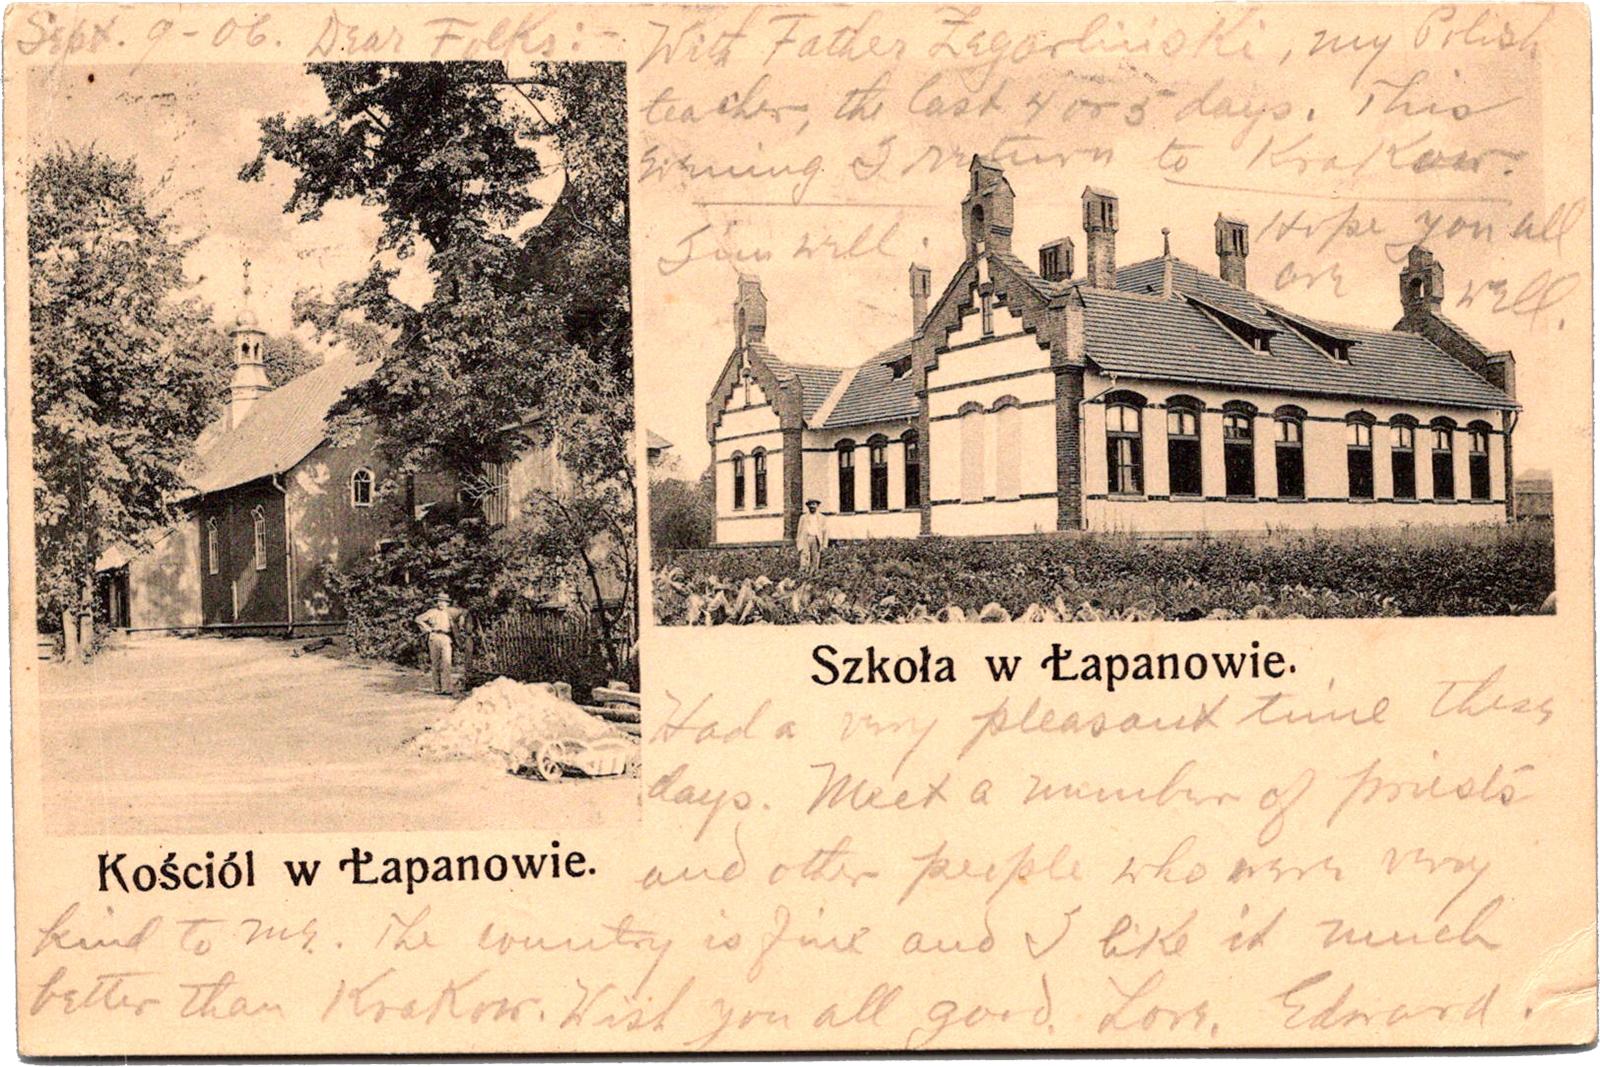 Sept. 9-06. Dear Folks:-
With Father Zegarliński, my Polish
teacher, the last 4 or 5 days. This
evening I return to Krakow.
I'm well. Hope you all
are well.
Szkoła w Łapanowie.
Had a very pleasant time these
days. Meet a number of priests
Kościól w Łapanowie.
and other people who were very
kind to me. The country is fine and I like it much
better than Krakow. Wish you all good. Love, Edward.